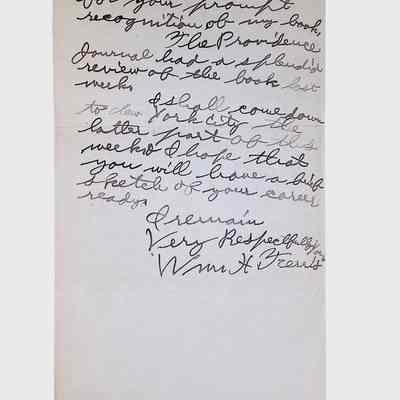 for your prompt
recognition of my book,
The Providence
Journal had a splendid
review of the book last
week.
I shall come down
to New York City the
latter part of this
week & I hope that
you will have a brief
sketch of your career
ready.
I remain
Very Respectfully
Wm H